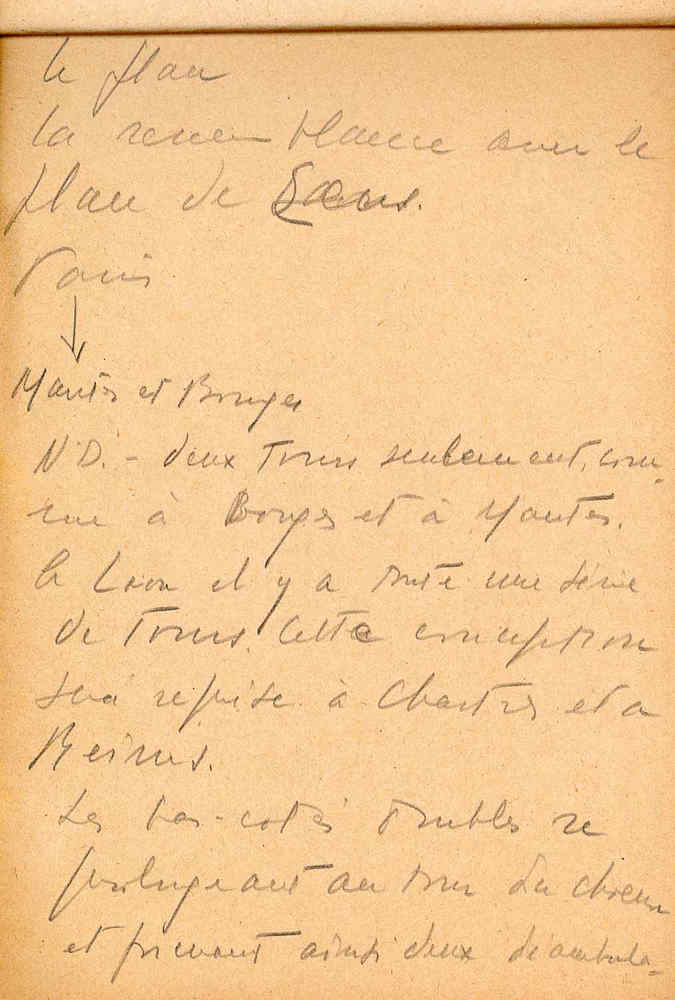 le plan
la ressemblance avec le
plan de Sens.
Paris
↓
Mantes et Bourges
N.D. - deux Tours seulement, com-
me à Bourges et à Mantes.
à Laon il y a toute une série
de Tours. Cette conception
sera reprise à Chartres et à
Reims.
Les bas-cotés doubles se
prolongeant au tour du choeur
et formant ainsi deux déambula-